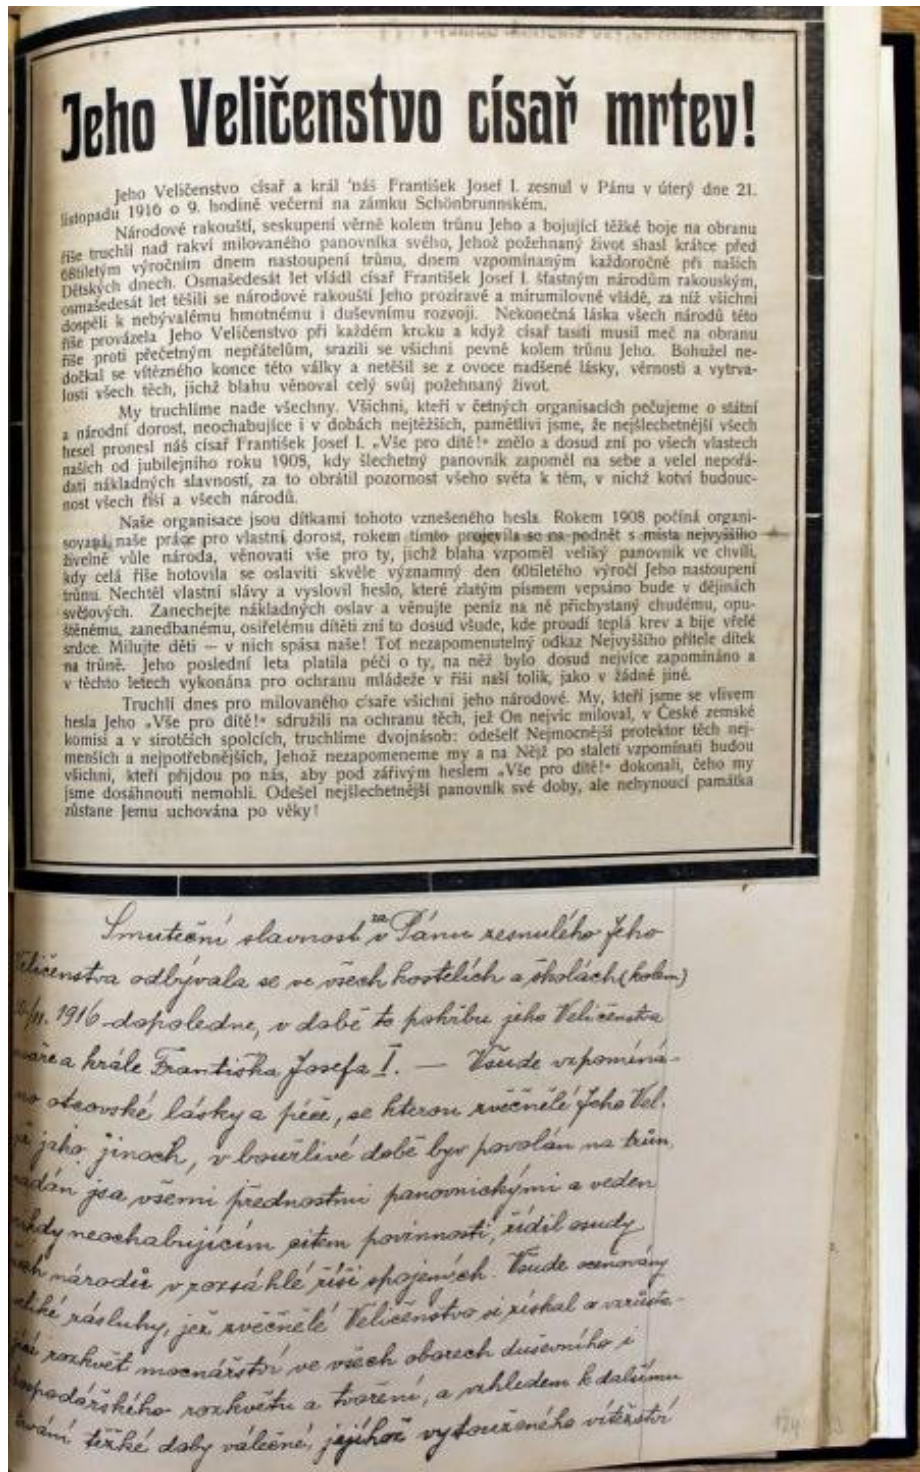 Jeho Veličenstvo císař mrtev!
Jeho Veličenstvo císař a král náš František Josef I. zesnul v Pánu v úterý dne 21.
listopadu 1916 o 9. hodině večerní na zámku Schönbrunnském.
Národové rakouští, seskupení věrně kolem trůnu Jeho a bojující těžké boje na obranu
říše truchlí nad rakví milovaného panovníka svého, Jehož požehnaný život shasl krátce před
68tiletým výročním dnem nastoupení trůnu, dnem vzpomínaným každoročně při našich
Dětských dnech. Osmašedesát let vládl císař František Josef I. šťastným národům rakouským,
osmašedesát let těšili se národové rakouští Jeho prozíravé a mírumilovné vládě, za níž všichni
dospěli k nebývalému hmotnému i duševnímu rozvoji. Nekonečná láska všech národů této
říše provázela Jeho Veličenstvo při každém kroku a když císař tasiti musil meč na obranu
říše proti přečetným nepřátelům, srazili se všichni pevně kolem trůnu Jeho. Bohužel ne-
dočkal se vítězného konce této války a netěšil se z ovoce nadšené lásky, věrnosti a vytrva-
losti všech těch, jichž blahu věnoval celý svůj požehnaný život.
My truchlíme nade všechny. Všichni, kteří v četných organisacích pečujeme o státní
a národní dorost, neochabujíce i v dobách nejtěžších, pamětlivi jsme, že nejšlechetnější všech
hesel pronesl náš císař František Josef I. „Vše pro dítě!“ znělo a dosud zní po všech vlastech
našich od jubilejního roku 1908, kdy šlechetný panovník zapoměl na sebe a velel nepořá-
dati nákladných slavností, za to obrátil pozornost všeho světa k těm, v nichž kotví budouc-
nost všech říší a všech národů.
Naše organisace jsou dítkami tohoto vznešeného hesla. Rokem 1908 počíná organi-
sovaná naše práce pro vlastní dorost, rokem tímto projevila se na podnět s místa nejvyššího
živelně vůle národa, věnovati vše pro ty, jichž blaha vzpoměl veliký panovník ve chvíli,
kdy celá říše hotovila se oslaviti skvěle významný den 60tiletého výročí Jeho nastoupení
trůnu. Nechtěl vlastní slávy a vyslovil heslo, které zlatým písmem vepsáno bude v dějinách
světových. Zanechejte nákladných oslav a věnujte peníz na ně přichystaný chudému, opu-
štěnému, zanedbanému, osiřelému dítěti zní to dosud všude, kde proudí teplá krev a bije vřelé
srdce. Milujte děti — v nich spása naše! Toť nezapomenutelný odkaz Nejvyššího přítele dítek
na trůně. Jeho poslední leta platila péči o ty, na něž bylo dosud nejvíce zapomínáno a
v těchto letech vykonána pro ochranu mládeže v říši naší tolik, jako v žádné jiné.
Truchlí dnes pro milovaného císaře všichni jeho národové. My, kteří jsme se vlivem
hesla Jeho „Vše pro dítě!“ sdružili na ochranu těch, jež On nejvíc miloval, v České zemské
komisi a v sirotčích spolcích, truchlíme dvojnásob: odešelť Nejmocnější protektor těch nej-
menších a nejpotřebnějších, Jehož nezapomeneme my a na Nějž po staletí vzpomínati budou
všichni, kteří přijdou po nás, aby pod zářivým heslem „Vše pro dítě!“ dokonali, čeho my
jsme dosáhnouti nemohli. Odešel nejšlechetnější panovník své doby, ale nehynoucí památka
zůstane Jemu uchována po věky!
Smuteční slavnost za v Pánu zesnulého Jeho
Veličenstva odbývala se ve všech kostelích a školách (kolem)
1916 dopoledne, v době to pohřbu jeho Veličenstva
a krále Františka Josefa I. — Všude vzpomíná-
no otcovské lásky a péče, se kterou zvěčnělé Jeho Vel.
jako jinoch, v bouřlivé době byv povolán na trůn,
nadán jsa všemi přednostmi panovnickými a veden
nikdy neochabujícím citem povinnosti, řídil osudy
všech národů v rozsáhlé říši spojených. Všude oceňovány
veliké zásluhy, jež zvěčnělé Veličenstvo si získal o vzrůsta-
jící rozkvět mocnářství ve všech oborech duševního i
hospodářského rozkvětu a tvoření, a vzhledem k dalšímu
trvání těžké doby válečné, jejíhož vytouženého vítězství
124